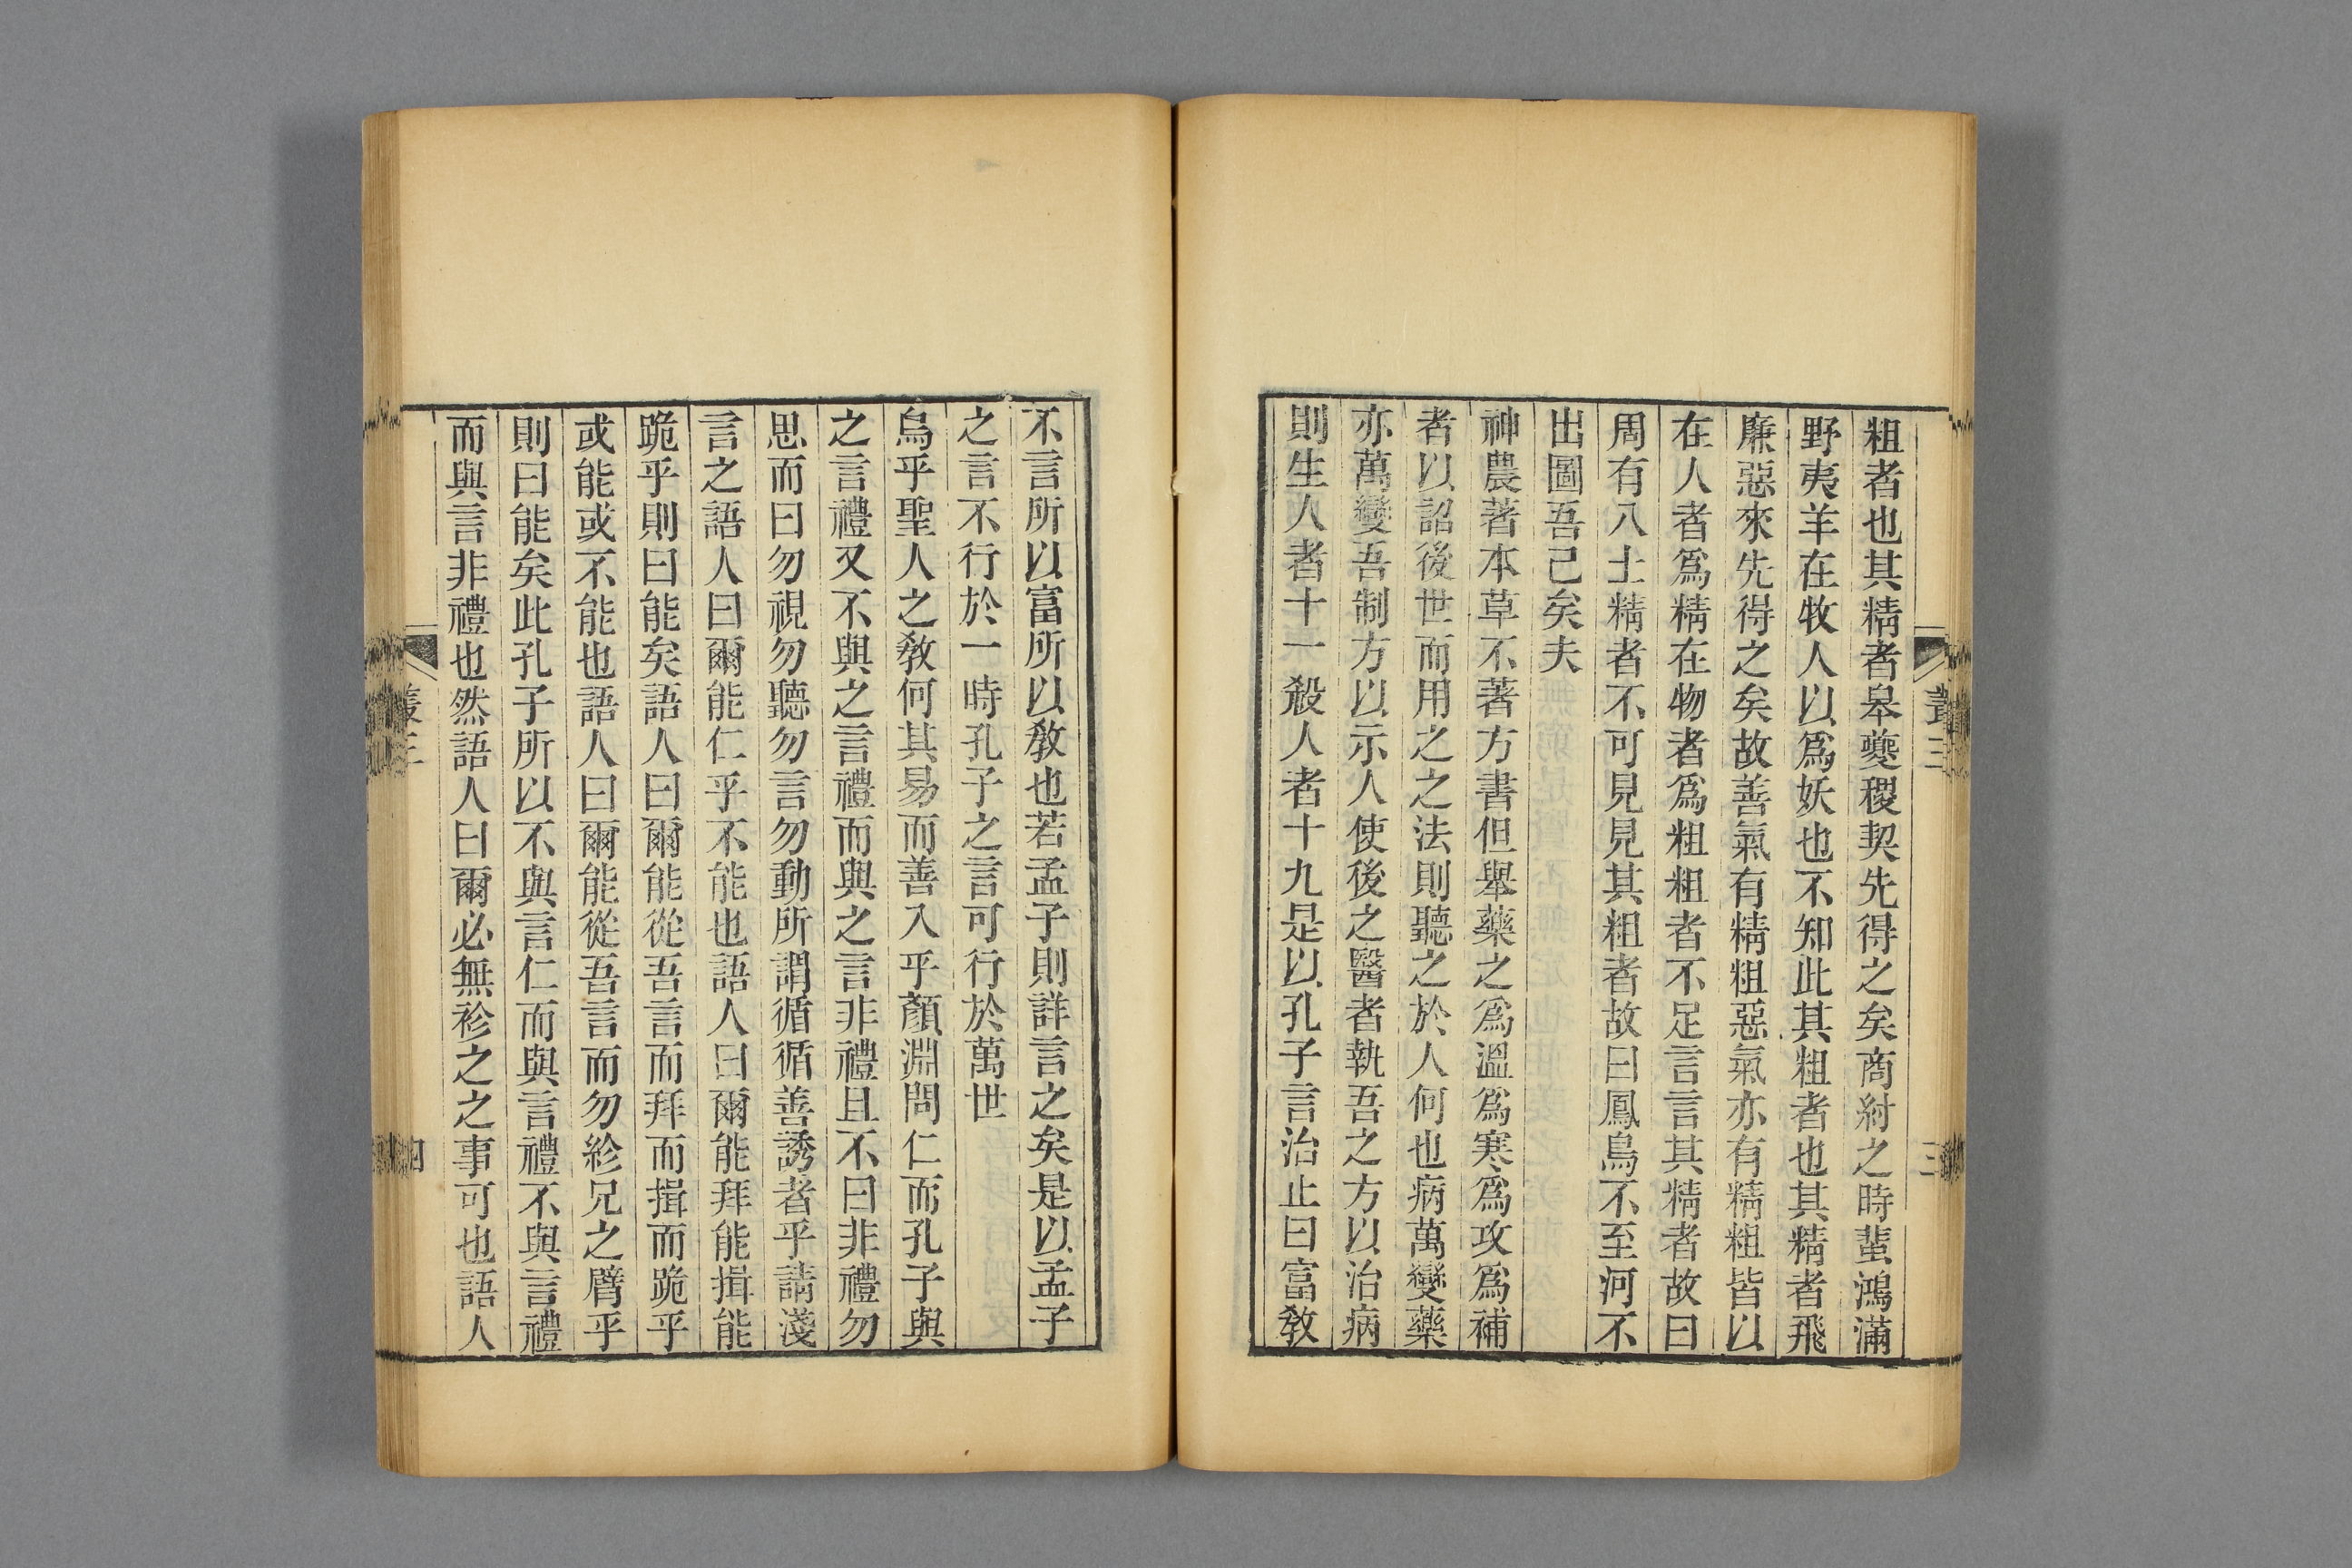 粗者也其精者皋夔稷契先得之矣商紂之時蜚鴻滿
野夷羊在牧人以爲妖也不知此其粗者也其精者飛
廉惡來先得之矣故善氣有精粗惡氣亦有精粗皆以
在人者爲精在物者爲粗粗者不足言言其精者故曰
周有八士精者不可見見其粗者故曰鳳鳥不至河不
出圖吾已矣夫
神農著本草不著方書但舉藥之爲溫爲寒爲攻爲補
者以詔後世而用之之法則聽之於人何也病萬變藥
亦萬變吾制方以示人使後之醫者執吾之方以治病
則生人者十一殺人者十九是以孔子言治止曰富敎
不言所以富所以敎也若孟子則詳言之矣是以孟子
之言不行於一時孔子之言可行於萬世
烏乎聖人之敎何其易而善入乎顏淵問仁而孔子與
之言禮又不與之言禮而與之言非禮且不曰非禮勿
思而曰勿視勿聽勿言勿動所謂循循善誘者乎請淺
言之語人曰爾能仁乎不能也語人曰爾能拜能揖能
跪乎則曰能矣語人曰爾能從吾言而拜而揖而跪乎
或能或不能也語人曰爾能從吾言而勿紾兄之臂乎
則曰能矣此孔子所以不與言仁而與言禮不與言禮
而與言非禮也然語人曰爾必無袗之之事可也語人
叢三
四